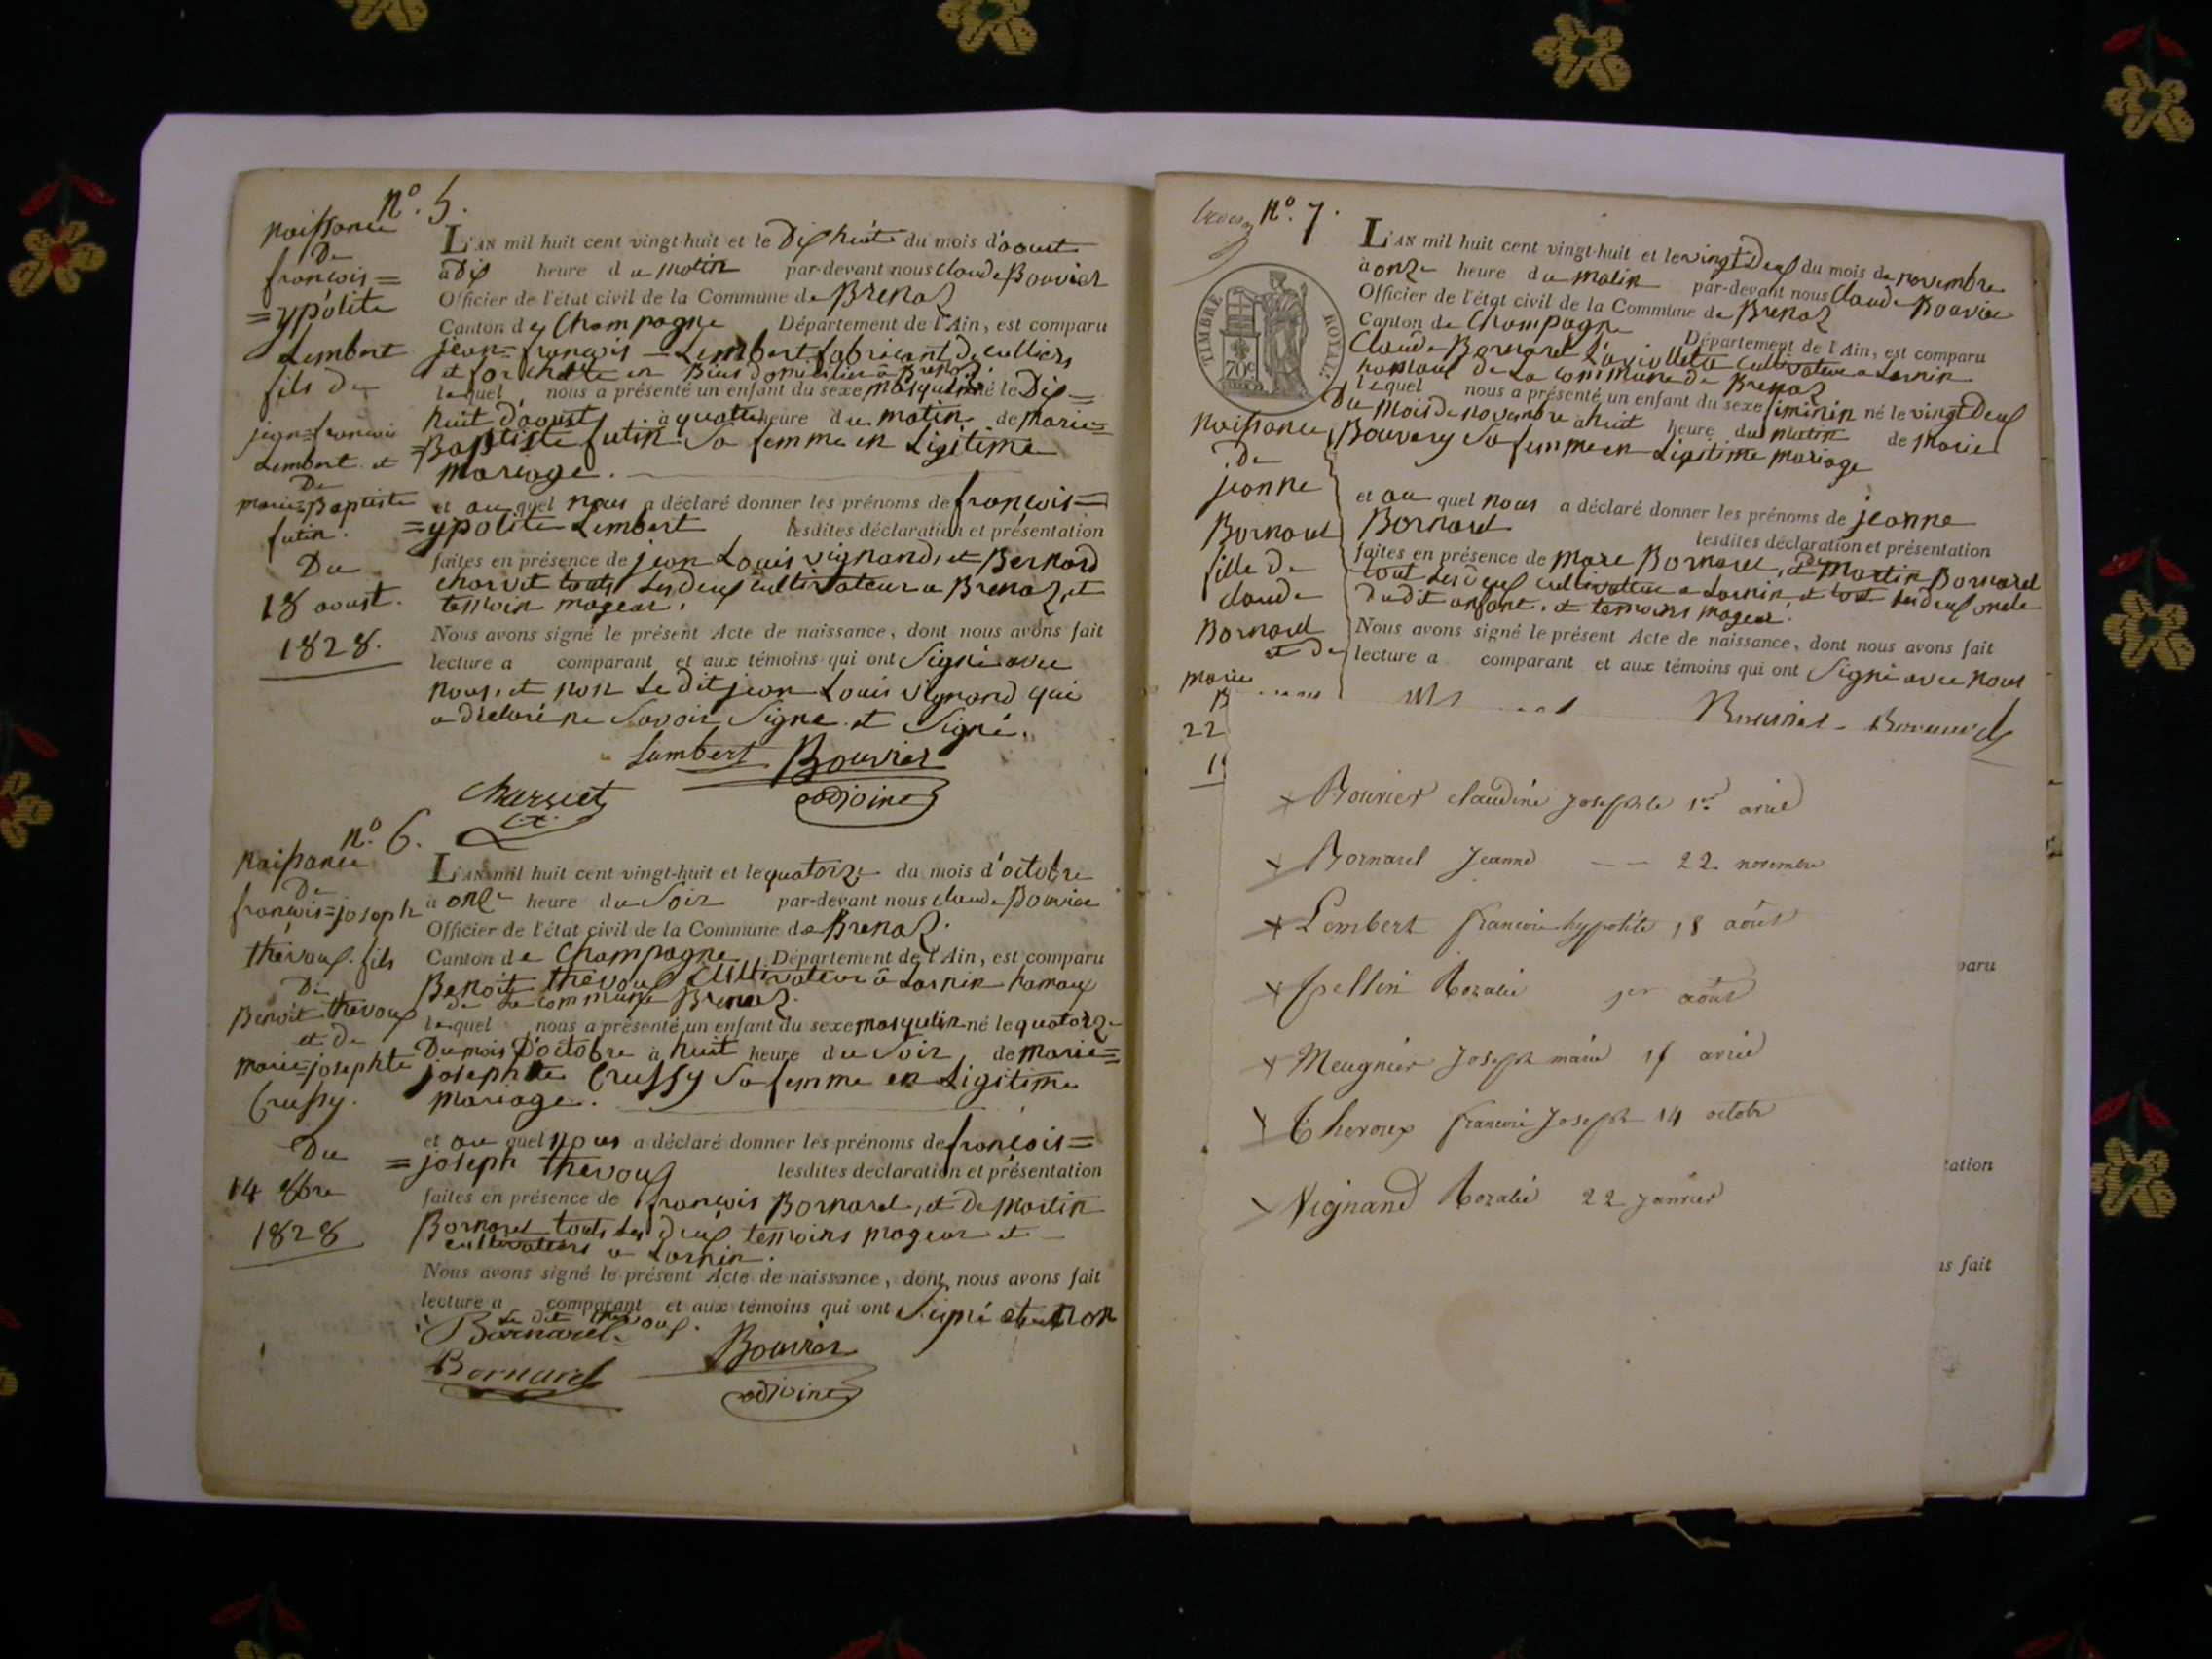 n°. 5.
naissance
De
françois=
=ypolite
Lembert
fils de
jean=francois
Lembert et
De
marie=Baptiste
futin.
Du
18 aoust.
1828.
L'AN mil huit cent vingt-huit et le Dix huit du mois d'aoust
a Dix heure du matin par-devant nous claude Bouvier
Officier de l'état civil de la Commune de Brenaz
Canton de Champagne Département de l'Ain, est comparu
jean=françois Lembert fabricant de culliers
et forchette en Bius domicilier à Brenaz
lequel nous a présenté un enfant du sexe masqulin né le Dix=
huit d'aoust à quatre heure du matin de marie=
=Baptiste futin Sa femme en Ligitime
mariage.
et au quel nous a déclaré donner les prénoms de françois=
=ypolite Lembert lesdites déclaration et présentation
faites en présence de jean Louis vignand, et Bernard
charvet touts Les deux cultivateur a Brenaz, et
temoin mageur.
Nous avons signé le présent Acte de naissance, dont nous avons fait
lecture a comparant et aux témoins qui ont Signé avec
nous, et non Le dit jean Louis vignand qui
a déclaré ne Savoir Signe et Signé.
Lambert Bouvier
Charvet adjoint
n°. 6.
naissance
De
françois=joseph
thévoux fils
De
Benoit thévoux
et De
marie=josephte
Crussy.
Du
14 8bre
1828
L'AN mil huit cent vingt-huit et le quatorze du mois d'octobre
à onze heure du Soir par-devant nous claude Bouvier
Officier de l'état civil de la Commune de Brenaz.
Canton de Champagne Département de l'Ain, est comparu
Benoit thévoux cultivateur à Lornin hamaux
de La commune Brenaz.
lequel nous a présenté un enfant du sexe masqulin né le quatorze
Du mois D'octobre à huit heure du Soir, de marie=
josephte Crussy Sa femme en Ligitime
mariage.
et au quel nous a déclaré donner les prénoms de françois=
=joseph thévoux lesdites declaration et présentation
faites en présence de françois Bornarel, et De martin
Bornarel touts Les deux temoins mageur et
cultivateurs a Lornin.
Nous avons signé le présent Acte de naissance, dont nous avons fait
lecture a comparant et aux témoins qui ont Signé et non
Le dit thévoux.
Bornarel
Bornarel Bouvier
adjoint
n°. 7.
TIMBRE ROYAL
70c
naissance
De
jeanne
Bornarel
fille De
claude
Bornarel
et De
marie
22
L'AN mil huit cent vingt-huit et le vingt Deux du mois de novembre
à onze heure du matin par-devant nous Claude Bouvier
Officier de l'état civil de la Commune de Brenaz
Canton de Champagne Département de l'Ain, est comparu
Claude Bornarel cultivateur a Lornin
hamaux De La commune De Brenaz
lequel nous a présenté un enfant du sexe féminin né le vingt Deux
Du mois De novembre à huit heure du matin de marie
Bouvery Sa femme en Ligitime mariage
et au quel nous a déclaré donner les prénoms de jeanne
Bornarel lesdites déclaration et présentation
faites en présence de marc Bornarel, et martin Bornarel
tout Les deux cultivateur a Lornin et tout Les deux oncle
du dit enfant, et temoins mageur.
Nous avons signé le présent Acte de naissance, dont nous avons fait
lecture a comparant et aux témoins qui ont Signé avec nous
Bournarel
x Bouvier claudine Josephte 1er avril
x Bornarel Jeanne -- 22 novembre
x Lembert francois hypolite 18 août
x Apellin Rozalie 1er août
x Meugnier Joseph marie 15 avril
x Thevoux francois Joseph 14 octobr
x Vignand Rozalie 22 Janvier
paru
tation
ns fait